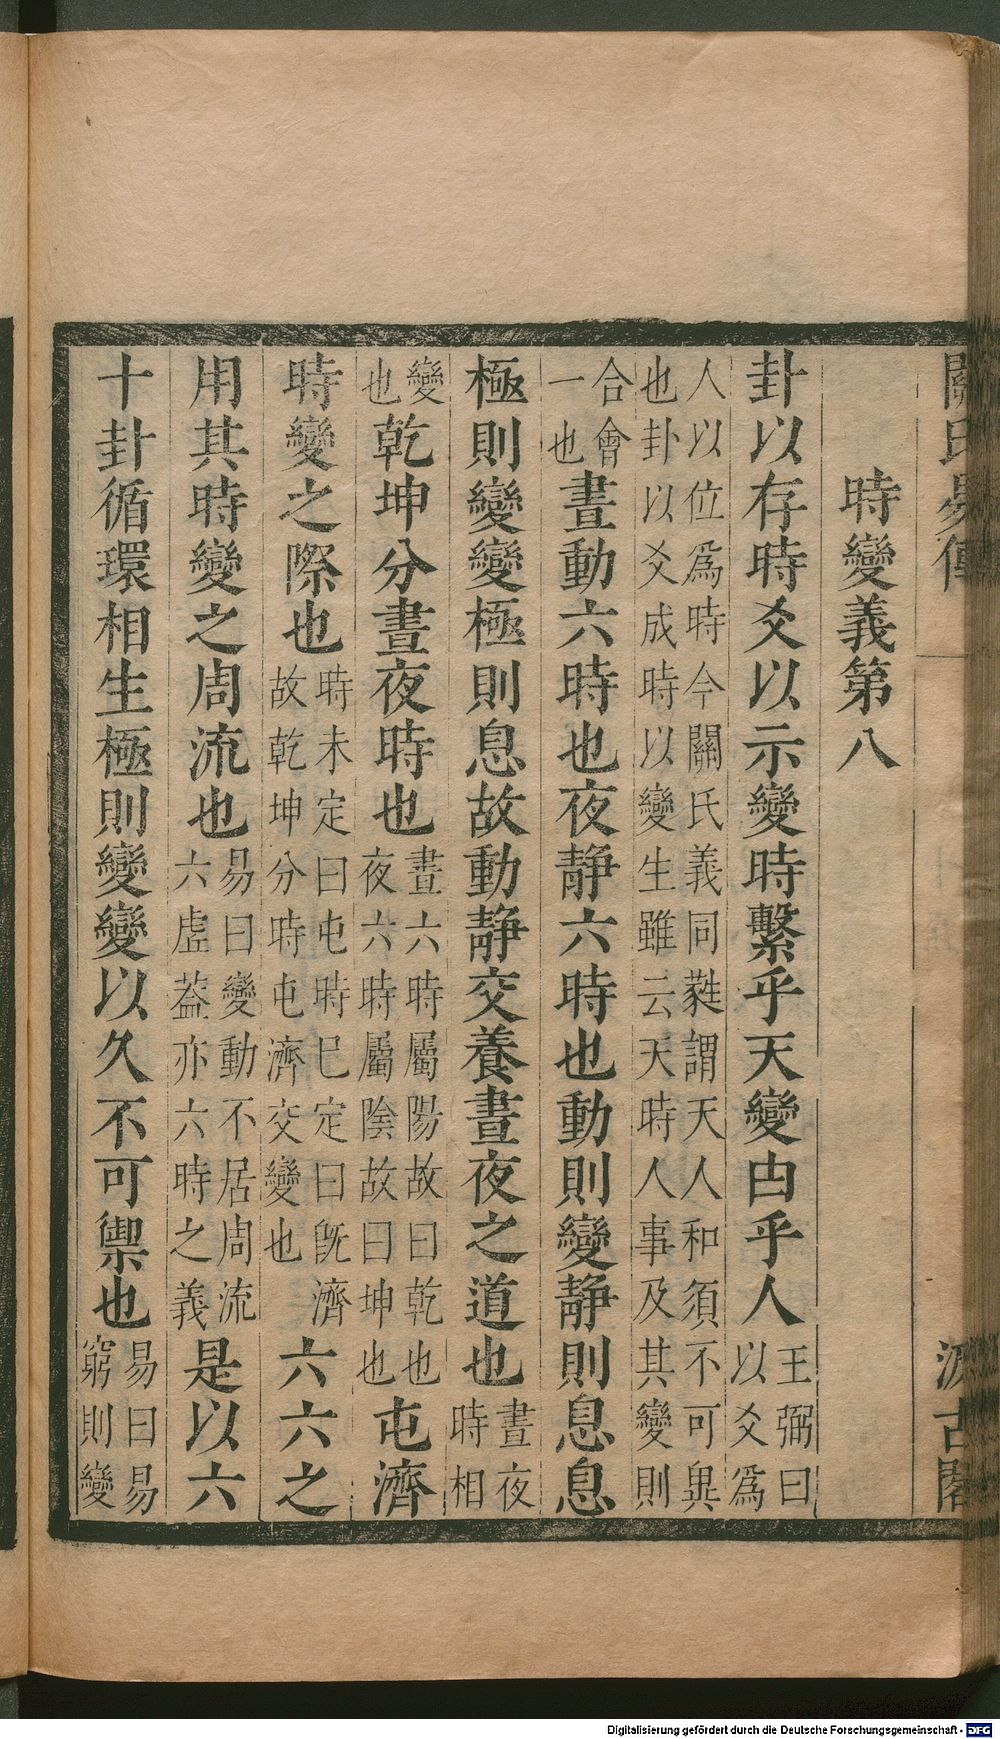 關氏易傳
汲古閣
時變義第八
卦以存時爻以示變時繫乎天變由乎人王弼曰以爻爲
人以位爲時今關氏義同蕤謂天人和須不可異也卦以爻成時以變生雖云天時人事及其變則
合會一也晝動六時也夜靜六時也動則變靜則息息
極則變變極則息故動靜交養晝夜之道也晝夜時相
變也乾坤分晝夜時也晝六時屬陽故曰乾也夜六時屬陰故曰坤也屯濟
時變之際也時未定曰屯時已定曰旣濟故乾坤分時屯濟交變也六六之
用其時變之周流也易曰變動不居周流六虛葢亦六時之義是以六
十卦循環相生極則變變以久不可禦也易曰易窮則變
Digitalisierung gefördert durch die Deutsche Forschungsgemeinschaft - DFG